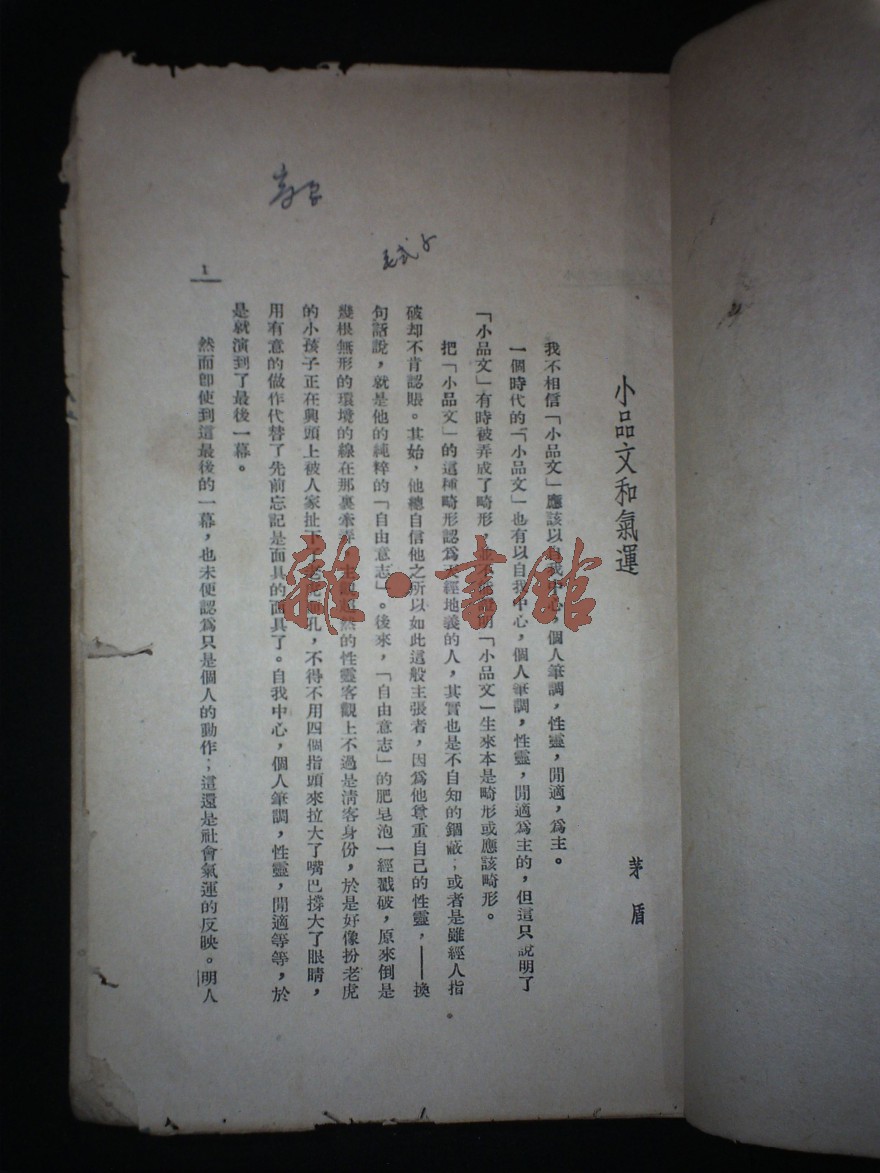 小品文和氣運
茅盾
我不相信「小品文」應該以自我中心，個人筆調，性靈，閒適，爲主。
一個時代的「小品文」也有以自我中心，個人筆調，性靈，閒適爲主的，但這只說明了
「小品文」有時被弄成了畸形，並不能說明「小品文」生來本是畸形或應該畸形。
把「小品文」的這種畸形認爲天經地義的人，其實也是不自知的錮蔽；或者是雖經人指
破却不肯認賬。其始，他總自信他之所以如此這般主張者，因爲他尊重自己的性靈，——換
句話說，就是他的純粹的「自由意志」。後來，「自由意志」的肥皂泡一經戳破，原來倒是
幾根無形的環境的線在那裏牽弄，主觀超然的性靈客觀上不過是清客身份，於是好像扮老虎
的小孩子正在興頭上被人家扯下了老虎面孔，不得不用四個指頭來拉大了嘴巴撐大了眼睛，
用有意的做作代替了先前忘記是面具的面具了。自我中心，個人筆調，性靈，閒適等等，於
是就演到了最後一幕。
然而卽使到這最後的一幕，也未便認爲只是個人的動作；這還是社會氣運的反映。明人
1
雜·書館